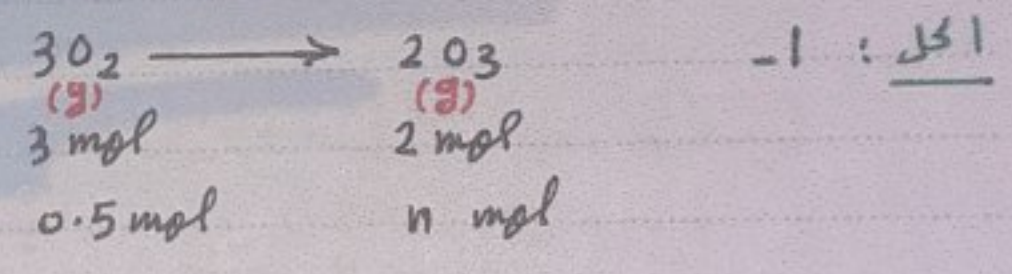 الحل : 1-
3O₂ ⟶ 2O₃
(g) (g)
3 mol 2 mol
0.5 mol n mol